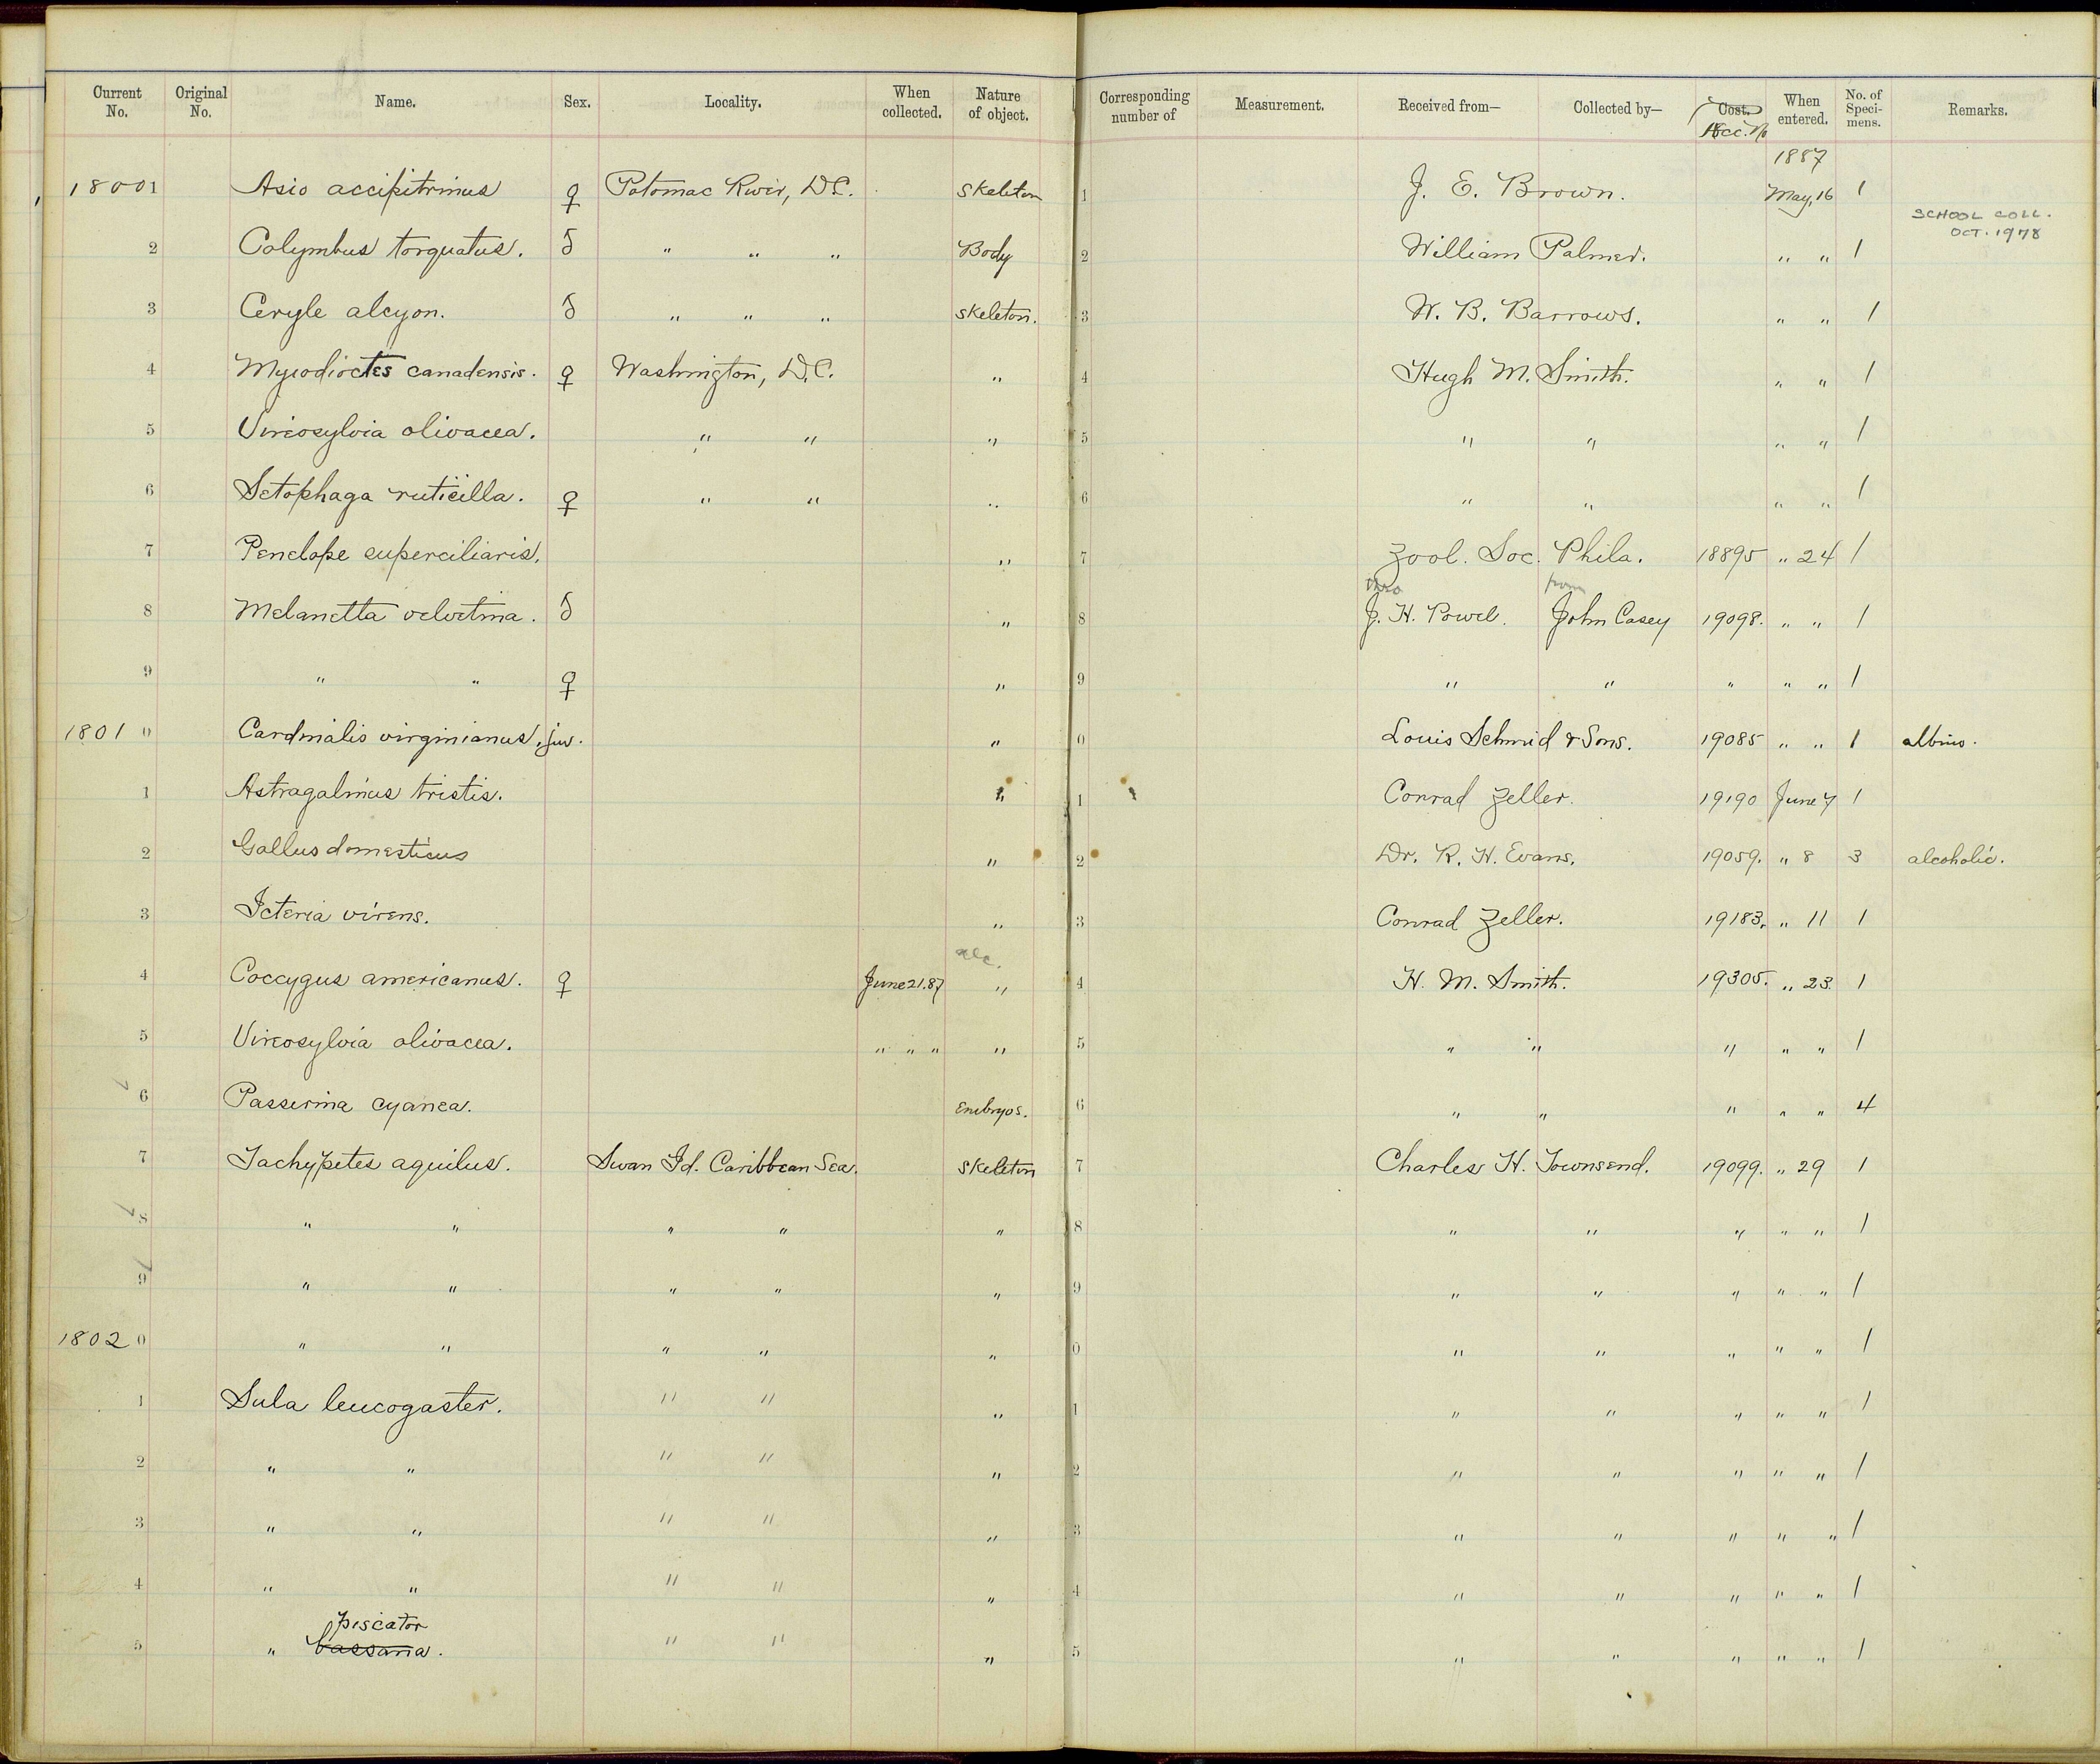 Current No. Original No. Name. Sex. Locality. When collected. Nature of object. Corresponding number of Measurement. Received from— Collected by— Cost. Acc. No When entered. No. of Speci-mens. Remarks.
1887
18001 Asio accipitrinus ♀ Potomac River, D.C. Skeleton 1 J. E. Brown. May, 16 1
SCHOOL COLL. OCT. 1978
2 Colymbus torquatus. ♂ " " " Body 2 William Palmer. " " 1
3 Ceryle alcyon. ♂ " " " Skeleton. 3 W. B. Barrows. " " 1
4 Myiodioctes canadensis. ♀ Washington, D.C. " 4 Hugh M. Smith. " " 1
5 Vireosylvia olivacea. " " " 5 " " " " 1
6 Setophaga ruticilla. ♀ " " " 6 " " " " 1
7 Penelope superciliaris. " 7 Zool. Soc. Phila. 18895 " 24 1
thro from
8 Melanetta velvetina. ♂ " 8 J. H. Powel. John Casey 19098. " " 1
9 " " ♀ " 9 " " " " " 1
18010 Cardinalis virginianus, juv. " 0 Louis Schmid & Sons. 19085 " " 1 albino.
1 Astragalinus tristis. " 1 Conrad Zeller. 19190 June 7 1
2 Gallus domesticus " 2 Dr. R. H. Evans. 19059. " 8 3 alcoholic.
3 Icteria virens. " 3 Conrad Zeller. 19183. " 11 1
alc.
4 Coccygus americanus. ♀ June 21.87 " 4 H. M. Smith. 19305. " 23. 1
5 Vireosylvia olivacea. " " " " 5 " " " " " 1
6 Passerina cyanea. Embryos. 6 " " " " " 4
7 Tachypetes aquilus. Swan Id. Caribbean Sea. Skeleton 7 Charles H. Townsend. 19099. " 29 1
8 " " " " " 8 " " " " " 1
9 " " " " " 9 " " " " " 1
18020 " " " " " 0 " " " " " 1
1 Sula leucogaster. " " " 1 " " " " " 1
2 " " " " " 2 " " " " " 1
3 " " " " " 3 " " " " " 1
4 " " " " " 4 " " " " " 1
piscator
5 " bassana. " " " 5 " " " " " 1